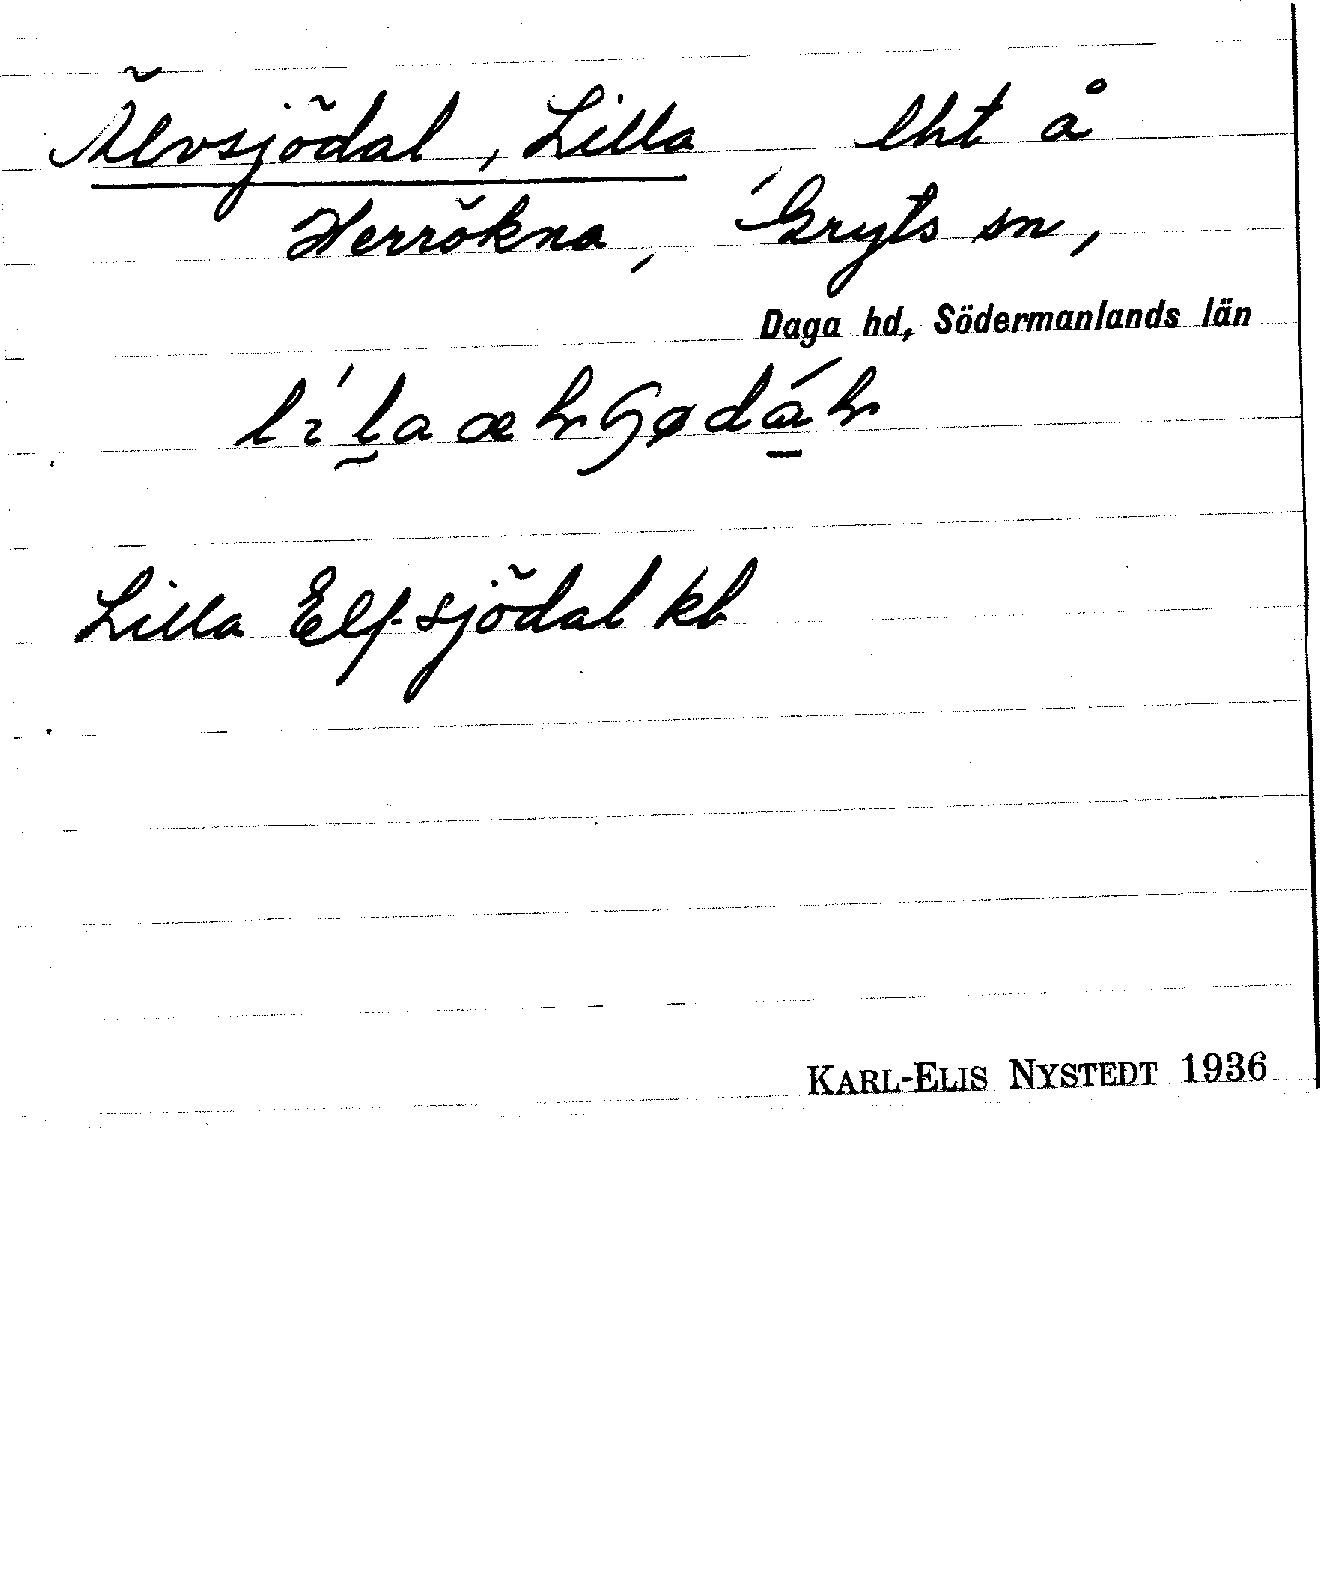 Älvsjödal, Lilla lht å
Herrökna, Gryts sn,
Daga hd, Södermanlands län
Lilla Elfsjödal kb
KARL-ELIS NYSTEDT 1936